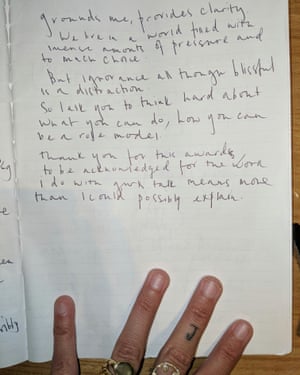 grounds me, provides clarity
We live in a world filled with
imense amounts of pressure and
to much choice.
But ignorance although blissful
is a distraction
So I ask you to think hard about
what you can do, how you can
be a role model.
Thank you for this award,
to be acknowledged for the work
I do with talk means more
than I could possibly explain.